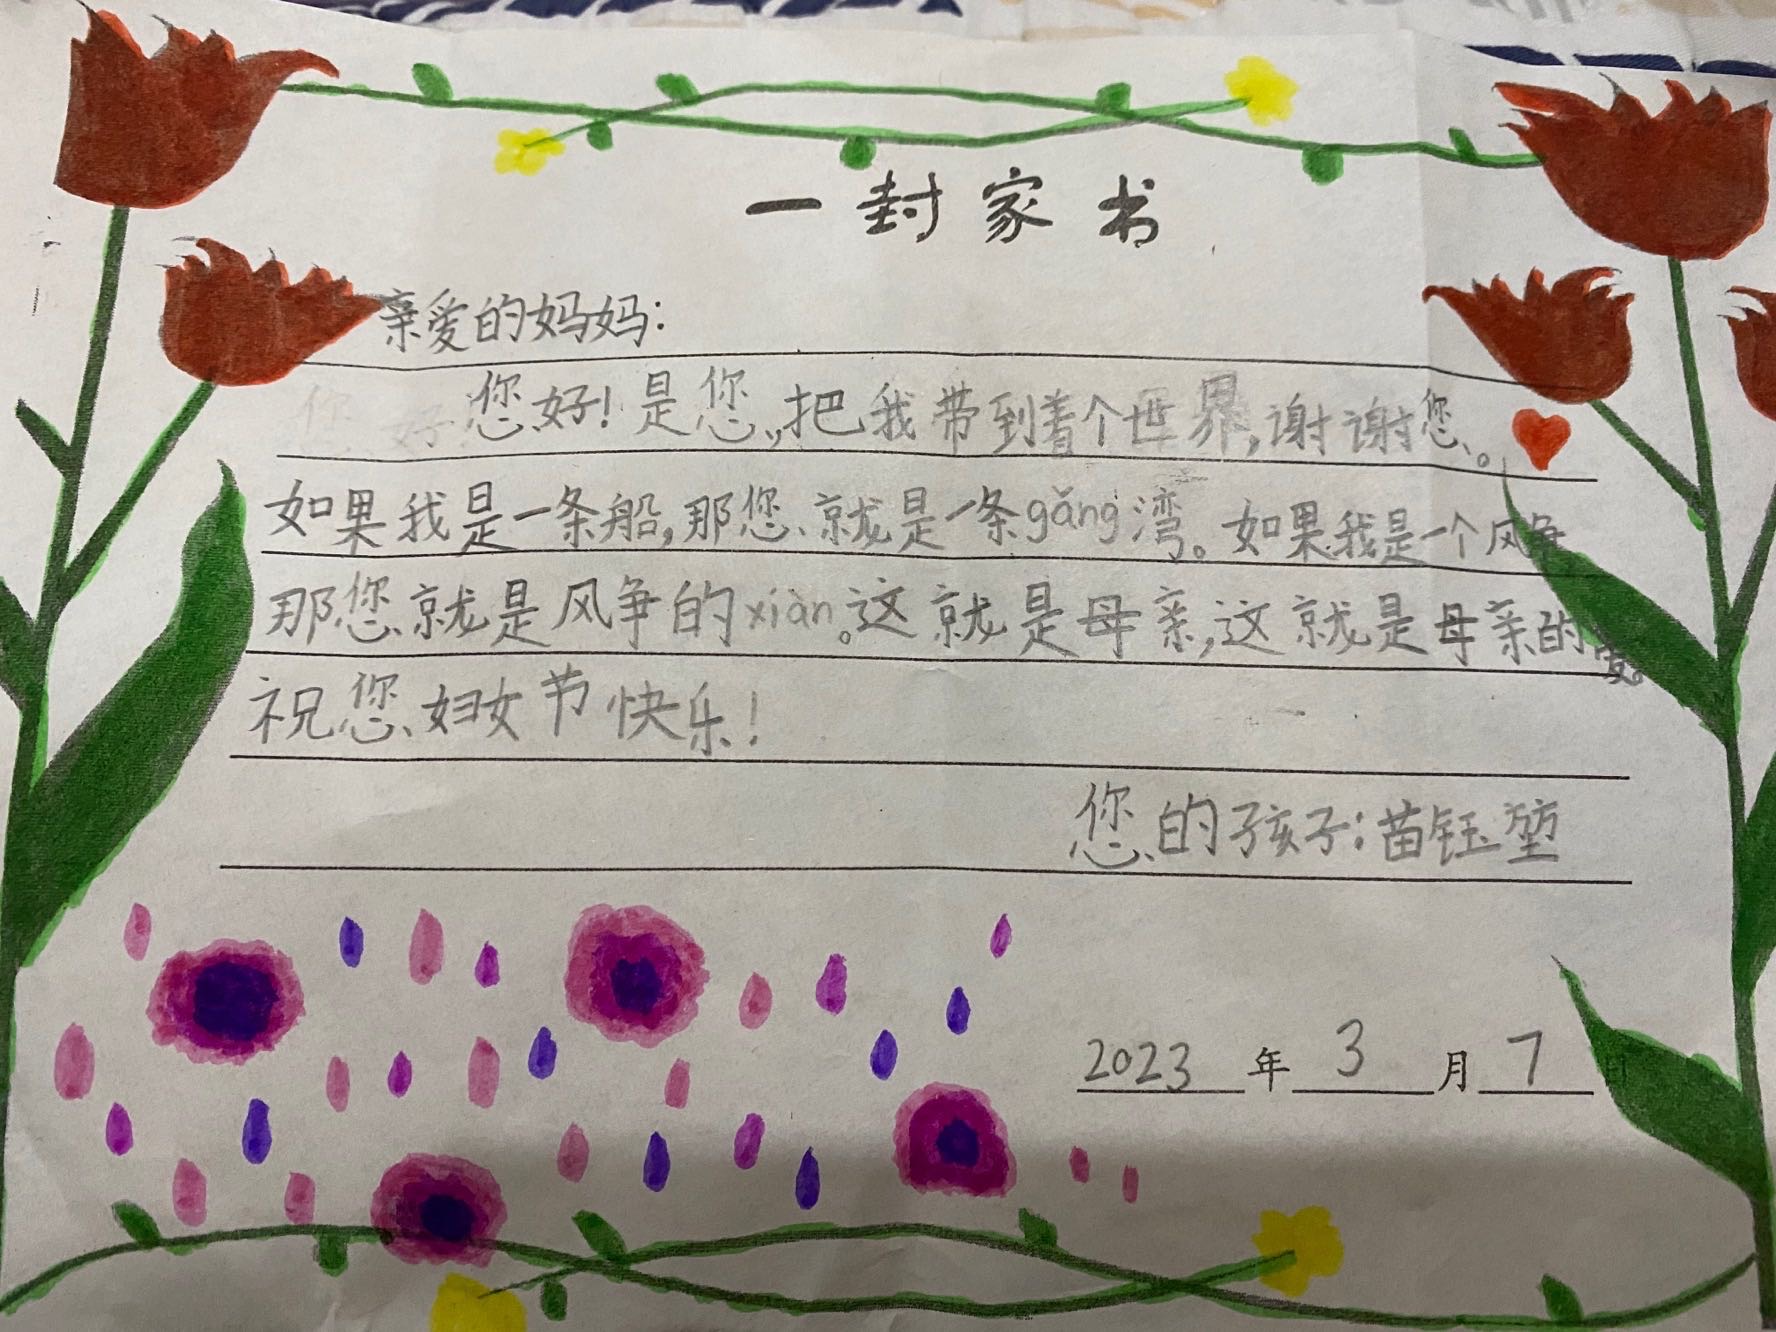 一封家书
亲爱的妈妈：
您好！是您，把我带到着个世界，谢谢您。
如果我是一条船，那您就是一条gǎng湾。如果我是一个风争
那您就是风争的xiàn。这就是母亲，这就是母亲的爱。
祝您妇女节快乐！
您的孩子：苗钰堃
2023年3月7日